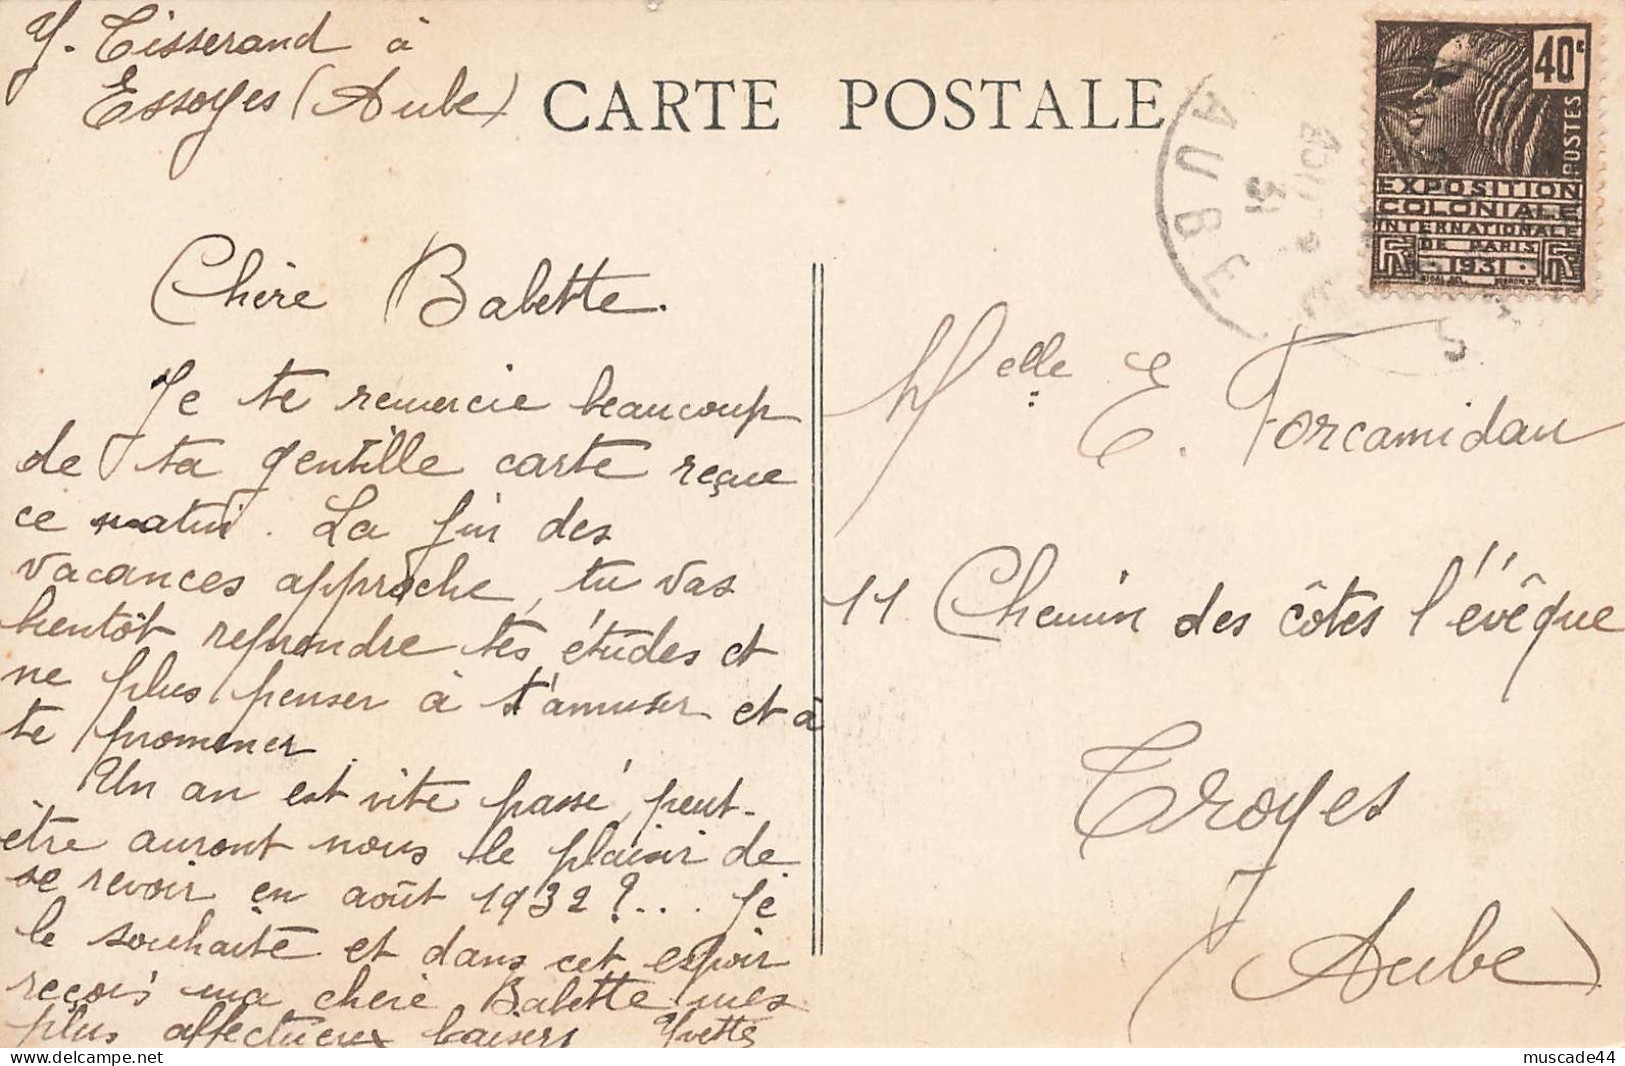 Y. Tisserand à
Essoyes (Aube)
CARTE POSTALE
AUBE
31
40c
POSTES
EXPOSITION
COLONIALE
INTERNATIONALE
DE PARIS
1931
Chère Babette.
Je te remercie beaucoup
de ta gentille carte reçue
ce matin. La fin des
vacances approche, tu vas
bientôt reprendre tes études et
ne plus penser à t'amuser et à
te promener.
Un an est vite passé, peut-
être auront nous le plaisir de
se revoir en août 1932 ?... Je
le souhaite et dans cet espoir
reçois ma chère Babette mes
plus affectueux baisers Yvette
Melle E. Forcamidan
11 Chemin des côtes l'évêque
Troyes
(Aube)
muscade44